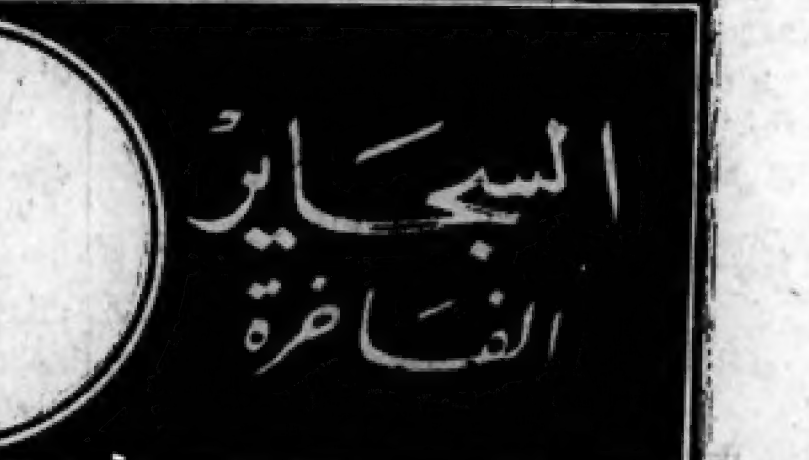 السجَايرْ
الفَاخرة